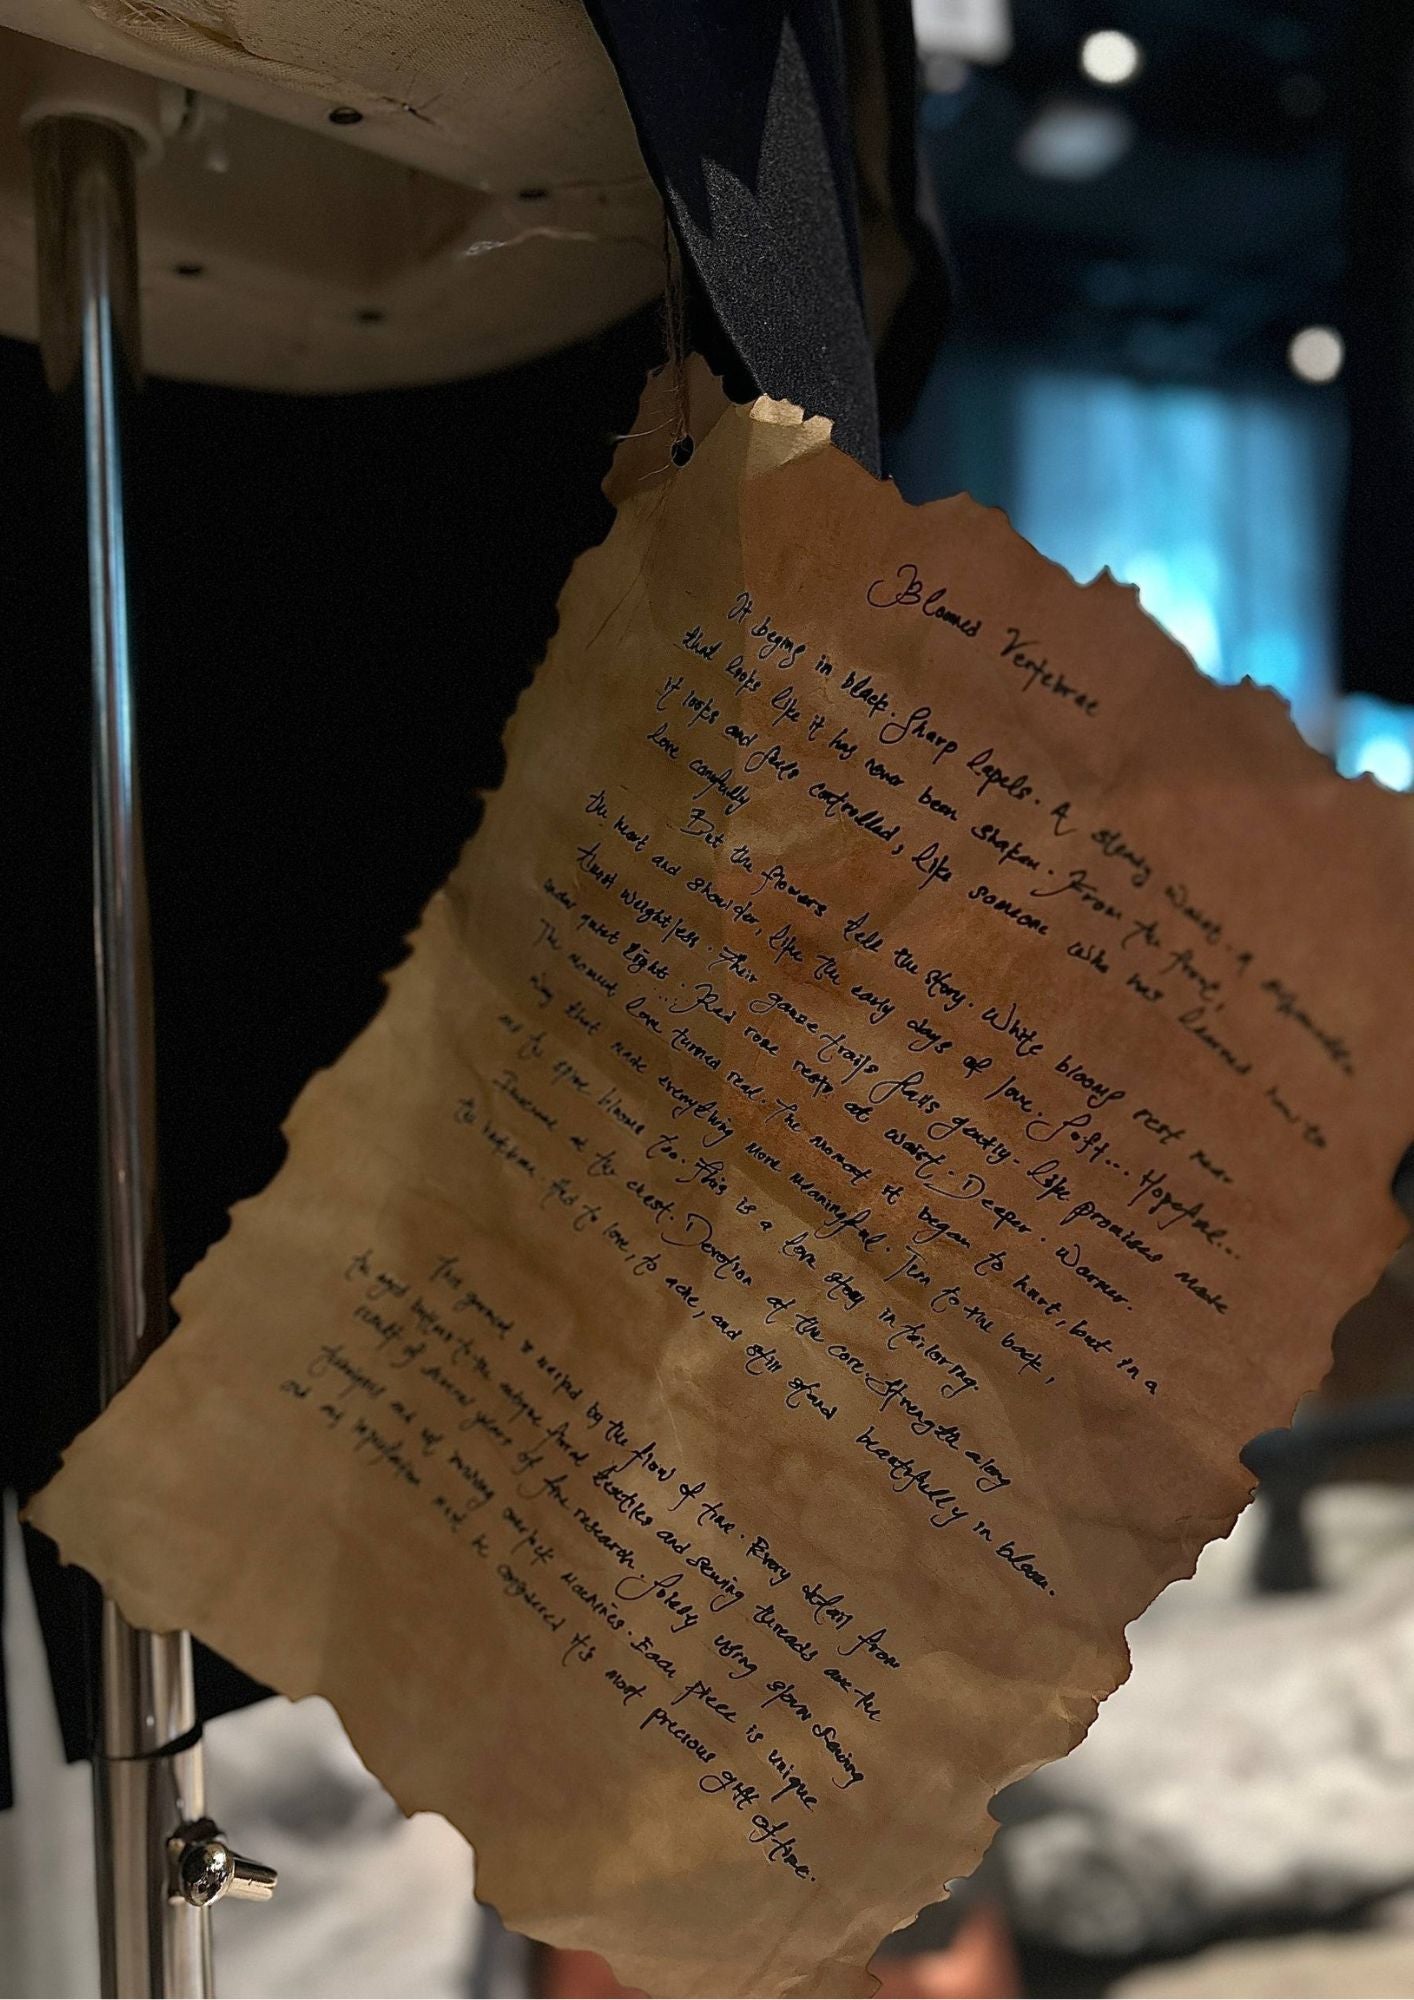 Bloomed Vertebrae
It begins in black. Sharp lapels. A steady waist. A
that looks like it has never been shaken. From the front,
it looks and feels controlled, like someone who has learned how to
love carefully
But the flowers tell the story. White blooms rest near
the heart and shoulder, like the early days of love. Soft... Hopeful...
Almost weightless. Their gauze trails falls gently - like promises made
under quiet lights.... Red rose rests at waist. Deeper. Warmer.
The moment love turned real. The moment it began to hurt, but in a
way that made everything more meaningful. Turn to the back,
and the spine blooms too. This is a love story in tailoring.
at the chest. Devotion at the core. Strength along
the vertebrae. That to love, to ache, and still stand beautifully in bloom.
This garment is by the flow of time. Every detail from
the aged buttons to the antique floral textiles and sewing threads are the
result of several years of fine research. Solely using slow sewing
techniques and not machines. Each piece is unique
and any imperfection must be considered it's most precious gift of time.